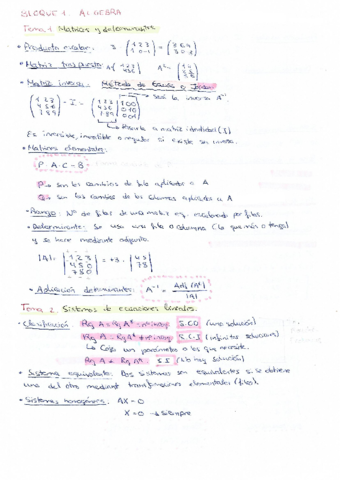 BLOQUE 1. ALGEBRA
Tema 1. Matrices y determinantes
• Producto escalar:
• Matriz traspuesta
• Matriz inversa: Método de Gauss o Jordan
será la inversa A⁻¹
matriz identidad (I)
Es inversible, invertible o regular si existe su inversa.
• Matrices elementales:
P · A · C = B
P → son los cambios de fila aplicados a A
Q → son los cambios de las columnas aplicados a A
• Rango: Nº de filas de una matriz eq. escalonada por filas.
• Determinante: Se usa una fila o columna (la que más 0 tenga)
y se hace mediante adjuntos.
• Aplicación determinantes: A⁻¹ =
Tema 2. Sistemas de ecuaciones lineales.
• Clasificación: Rg A = Rg A* = nº incóg S.C.D (una solución)
Rg A = Rg A* ≠ nº incóg S.C.I (infinitas soluciones)
↳ Coge un parámetro o los que necesite.
Rg A ≠ Rg A* S.I (No hay solución)
• Sistema equivalente: Dos sistemas son equivalentes si se obtiene
uno del otro mediante transformaciones elementales (filas).
• Sistemas homogéneos: AX = 0
X = 0 → siempre